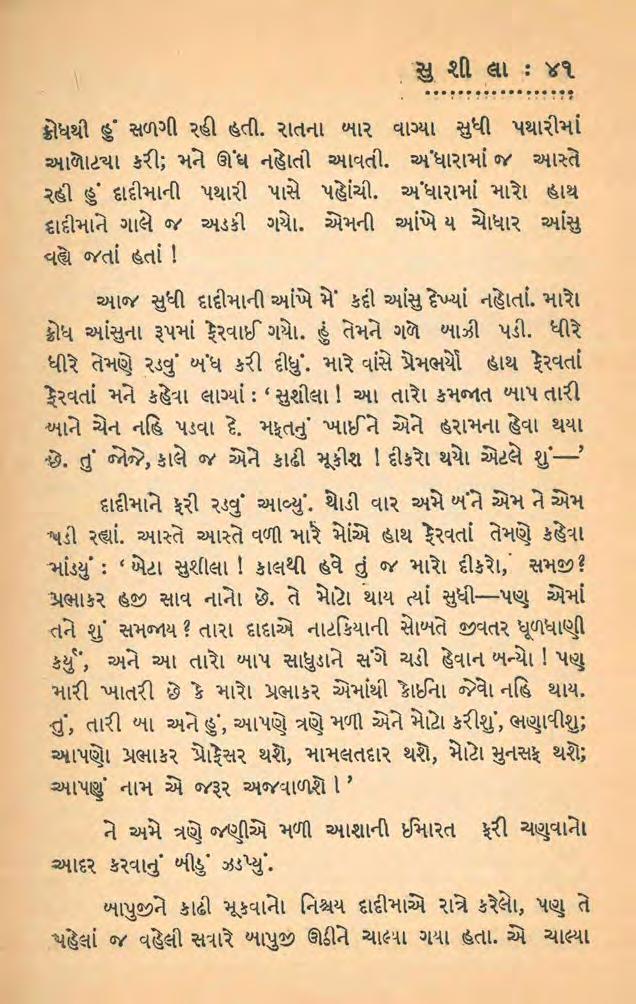 સુ શી લા : ૪૧
ક્રોધથી હું સળગી રહી હતી. રાતના બાર વાગ્યા સુધી પથારીમાં
આળોટ્યા કરી; મને ઊંઘ નહોતી આવતી. અંધારામાં જ આસ્તે
રહી હું દાદીમાની પથારી પાસે પહોંચી. અંધારામાં મારો હાથ
દાદીમાને ગાલે જ અડકી ગયો. એમની આંખે ય ચોધાર આંસુ
વહ્યે જતાં હતાં !
આજ સુધી દાદીમાની આંખે મેં કદી આંસુ દેખ્યાં નહોતાં. મારો
ક્રોધ આંસુના રૂપમાં ફેરવાઈ ગયો. હું તેમને ગળે બાઝી પડી. ધીરે
ધીરે તેમણે રડવું બંધ કરી દીધું. મારે વાંસે પ્રેમભર્યો હાથ ફેરવતાં
ફેરવતાં મને કહેવા લાગ્યાં : ‘સુશીલા ! આ તારો કમજાત બાપ તારી
બાને ચેન નહિ પડવા દે. મફતનું ખાઈને એને હરામના હેવા થયા
છે. તું જોજે, કાલે જ એને કાઢી મૂકીશ ! દીકરો થયો એટલે શું—’
દાદીમાને ફરી રડવું આવ્યું. થોડી વાર અમે બંને એમ ને એમ
પડી રહ્યાં. આસ્તે આસ્તે વળી મારે મોંએ હાથ ફેરવતાં તેમણે કહેવા
માંડયું : ‘બેટા સુશીલા ! કાલથી હવે તું જ મારો દીકરો, સમજી?
પ્રભાકર હજી સાવ નાનો છે. તે મોટો થાય ત્યાં સુધી—પણ એમાં
તને શું સમજાય? તારા દાદાએ નાટકિયાની સોબતે જીવતર ધૂળધાણી
કર્યું, અને આ તારો બાપ સાધુડાને સંગે ચડી હેવાન બન્યો ! પણ
મારી ખાતરી છે કે મારો પ્રભાકર એમાંથી કોઈના જેવો નહિ થાય.
તું, તારી બા અને હું, આપણે ત્રણે મળી એને મોટો કરીશું, ભણાવીશુ;
આપણો પ્રભાકર પ્રોફેસર થશે, મામલતદાર થશે, મોટો મુનસફ થશે;
આપણું નામ એ જરૂર અજવાળશે !’
ને અમે ત્રણે જણીએ મળી આશાની ઈમારત ફરી ચણવાનો
આદર કરવાનું બીડું ઝડપ્યું.
બાપુજીને કાઢી મૂકવાનો નિશ્ચય દાદીમાએ રાત્રે કરેલો, પણ તે
પહેલાં જ વહેલી સવારે બાપુજી ઊઠીને ચાલ્યા ગયા હતા. એ ચાલ્યા